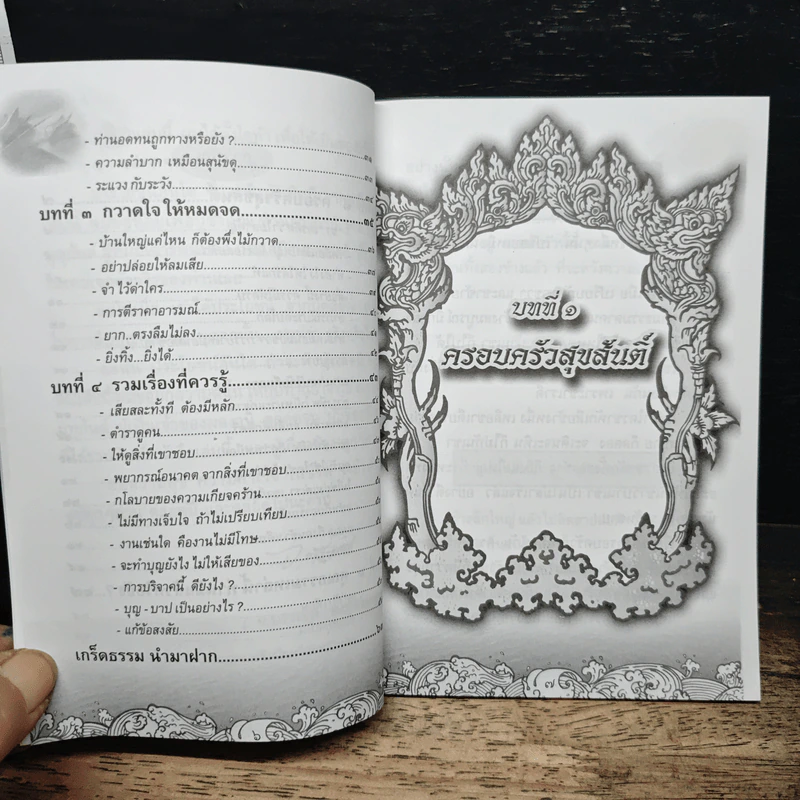 - ท่านอดทนถูกทางหรือยัง ?
- ความลำบาก เหมือนสุนัขดุ
- ระแวง กับระวัง
บทที่ ๓ กวาดใจ ให้หมดจด ๓๕
- บ้านใหญ่แค่ไหน ก็ต้องพึ่งไม้กวาด
- อย่าปล่อยให้ลมเสีย
- จำ ไว้ด่าใคร
- การตีราคาอารมณ์
- ยาก..ตรงลืมไม่ลง
- ยิ่งทิ้ง...ยิ่งได้
บทที่ ๔ รวมเรื่องที่ควรรู้
- เสียสละทั้งที ต้องมีหลัก
- ตำราดูคน
- ให้ดูสิ่งที่เขาชอบ
- พยากรณ์อนาคต จากสิ่งที่เขาชอบ
- กโลบายของความเกียจคร้าน
- ไม่มีทางเจ็บใจ ถ้าไม่เปรียบเทียบ
- งานเช่นใด คืองานไม่มีโทษ
- จะทำบุญยังไง ไม่ให้เสียของ
- การบริจาคนี้ ดียังไง ?
- บุญ - บาป เป็นอย่างไร ?
- แก้ข้อสงสัย
เกร็ดธรรม นำมาฝาก
บทที่ ๑
ครอบครัวสุขสันติ์
๗